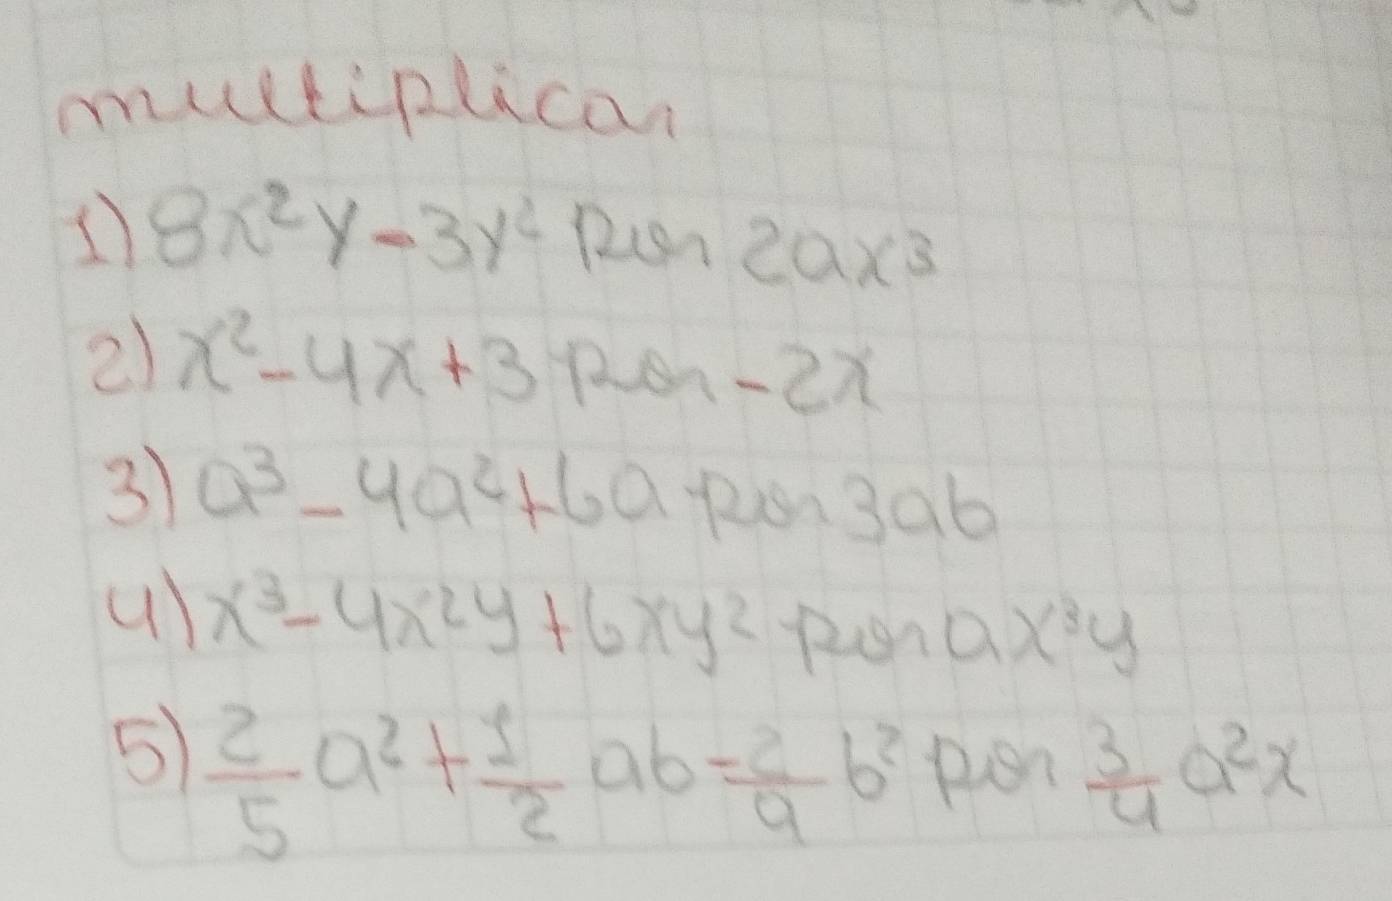 multiplicar
1) 8x²y - 3y² por 2ax³
2) x² - 4x + 3 por -2x
3) a³ - 4a² + 6a por 3ab
4) x³ - 4x²y + 6xy² por ax³y
5) 2/5 a² + 1/2 ab - 2/9 b² por 3/4 a²x